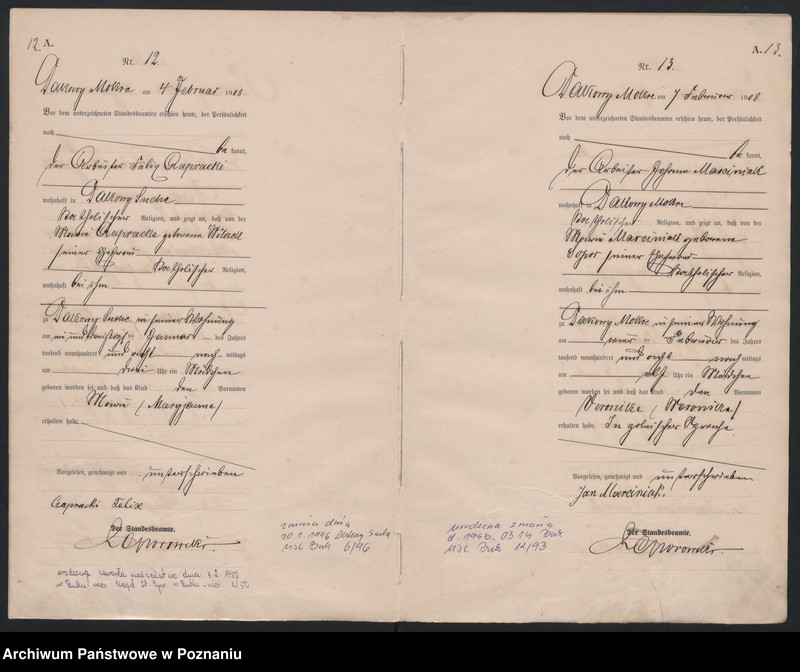 12. A.
Nr. 12.
Dakowy Mokre am 4 Februar 1908
Vor dem unterzeichneten Standesbeamten erschien heute, der Persönlichkeit
nach
be kannt,
der Arbeiter Felix Czapracki
wohnhaft in Dakowy Suche
katholischer Religion, und zeigt an, daß von der
Marie Czapracka geborene
seiner Ehefrau
katholischer Religion,
wohnhaft bei ihm
zu Dakowy Suche in seiner Wohnung
am ein und dreißigsten Januar des Jahres
tausend neunhundert und acht nach mittags
am drei Uhr ein Mädchen
geboren worden sei und daß das Kind den Vornamen
Marie /Maryjanna/
erhalten habe.
Vorgelesen, genehmigt und unterschrieben
Czapracki Felix
Der Standesbeamte.
A. 13.
Nr. 13.
Dakowy Mokre am 7 Februar 1908
Vor dem unterzeichneten Standesbeamten erschien heute, der Persönlichkeit
nach
be kannt,
der Arbeiter Johann Marciniak
wohnhaft in Dakowy Mokre
katholischer Religion, und zeigt an, daß von der
Marie Marciniak geborene
seiner Ehefrau
katholischer Religion,
wohnhaft bei ihm
zu Dakowy Mokre in seiner Wohnung
am Februar des Jahres
tausend neunhundert und acht nach mittags
am elf Uhr ein Mädchen
geboren worden sei und daß das Kind den Vornamen
Veronika /Weronika/
erhalten habe. In polnischer Sprache
Vorgelesen, genehmigt und unterschrieben
Jan Marciniak.
Der Standesbeamte.
zmarła dnia
10.1.1996
USC Buk 6/96
USC Buk 12/93
Archiwum Państwowe w Poznaniu